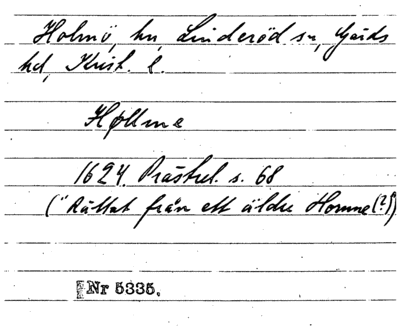 Holmö, hn, Linderöd sn, Gärds
hd, Krist. l.
Høllme
1624. Prästrel. s. 68
("Rättat från ett äldre Homme(?)")
Nr 5335.